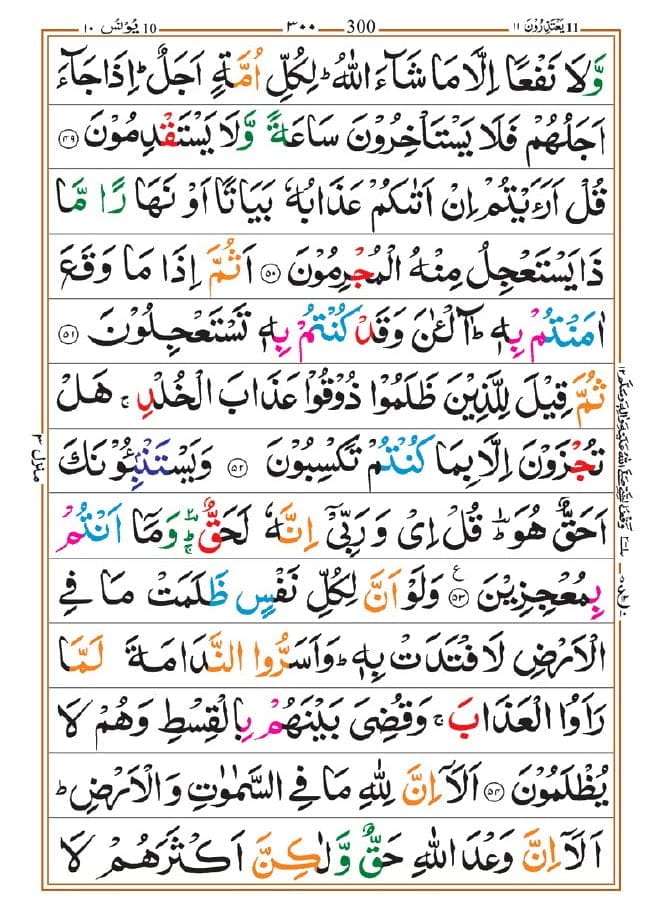 11 يَعْتَذِرُوْنَ ١١
300 ٣٠٠
10 يُوْنُس ١٠
وَّلَا نَفْعًا اِلَّا مَا شَآءَ اللّٰهُ ؕ لِكُلِّ اُمَّةٍ اَجَلٌ ؕ اِذَا جَآءَ
اَجَلُهُمْ فَلَا يَسْتَاْخِرُوْنَ سَاعَةً وَّلَا يَسْتَقْدِمُوْنَ ۝۴۹
قُلْ اَرَءَيْتُمْ اِنْ اَتٰىكُمْ عَذَابُهٗ بَيَاتًا اَوْ نَهَارًا مَّا
ذَا يَسْتَعْجِلُ مِنْهُ الْمُجْرِمُوْنَ ۝۵۰ اَثُمَّ اِذَا مَا وَقَعَ
اٰمَنْتُمْ بِهٖ ؕ آٰلْـٰٔنَ وَقَدْ كُنْتُمْ بِهٖ تَسْتَعْجِلُوْنَ ۝۵۱
ثُمَّ قِيْلَ لِلَّذِيْنَ ظَلَمُوْا ذُوْقُوْا عَذَابَ الْخُلْدِ ۚ هَلْ
تُجْزَوْنَ اِلَّا بِمَا كُنْتُمْ تَكْسِبُوْنَ ۝۵۲ وَيَسْتَنْۢبِـُٔوْنَكَ
اَحَقٌّ هُوَ ؕ قُلْ اِيْ وَرَبِّيْۤ اِنَّهٗ لَحَقٌّ ؔؕ وَمَاۤ اَنْتُمْ
بِمُعْجِزِيْنَ ۝۵۳ ع وَلَوْ اَنَّ لِكُلِّ نَفْسٍ ظَلَمَتْ مَا فِي
الْاَرْضِ لَافْتَدَتْ بِهٖ ؕ وَاَسَرُّوا النَّدَامَةَ لَمَّا
رَاَوُا الْعَذَابَ ۚ وَقُضِيَ بَيْنَهُمْ بِالْقِسْطِ وَهُمْ لَا
يُظْلَمُوْنَ ۝۵۴ اَلَاۤ اِنَّ لِلّٰهِ مَا فِي السَّمٰوٰتِ وَالْاَرْضِ ؕ
اَلَاۤ اِنَّ وَعْدَ اللّٰهِ حَقٌّ وَّلٰكِنَّ اَكْثَرَهُمْ لَا
منزل ۳